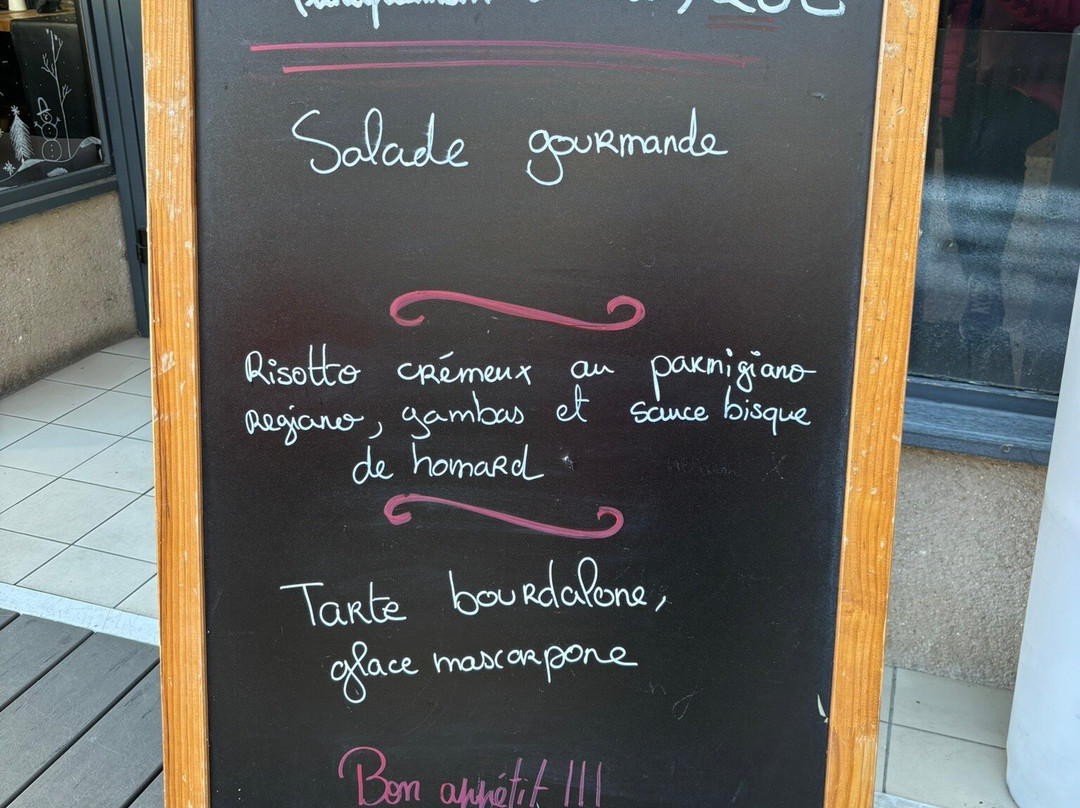 Salade gourmande
Risotto crémeux au parmigiano
regiano, gambas et sauce bisque
de homard
Tarte bourdalone,
glace mascarpone
Bon appétit !!!